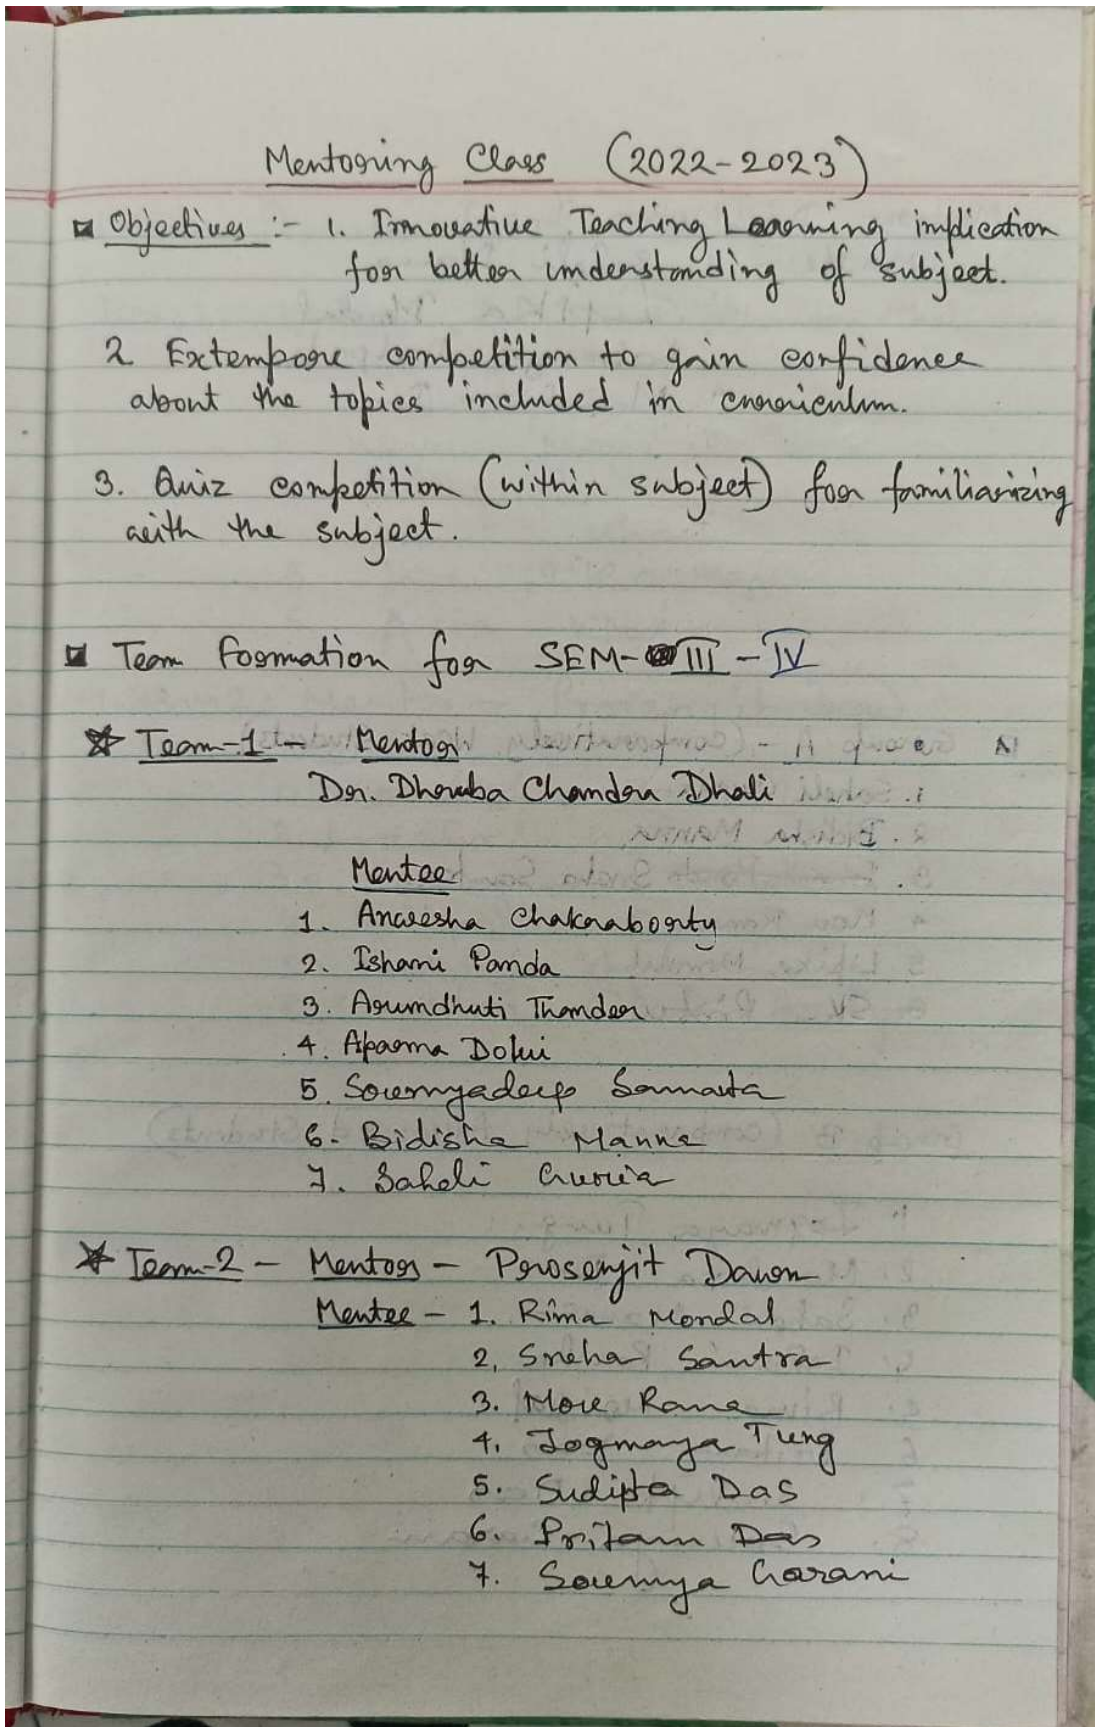 Mentoring Class (2022-2023)
Objectives :- 1. Innovative Teaching Learning implication
for better understanding of subject.
2 Extempore competition to gain confidence
about the topics included in curriculum.
3. Quiz competition (within subject) for familiarizing
with the subject.
Team formation for SEM- III - IV
Team-1 - Mentor
Dr. Dhruba Chandra Dhali
Mentee
1. Anwesha Chakraborty
2. Ishani Panda
3. Arundhuti Thander
4. Aparna Dolui
5. Soumyadeep Samanta
6. Bidisha Manna
7. Saheli Guria
Team-2 - Mentor - Prosenjit Dawn
Mentee - 1. Rima Mondal
2, Sneha Santra
3. Mou Rana
4. Jogmaya Tung
5. Sudipta Das
6. Pritam Das
7. Soumya Garani